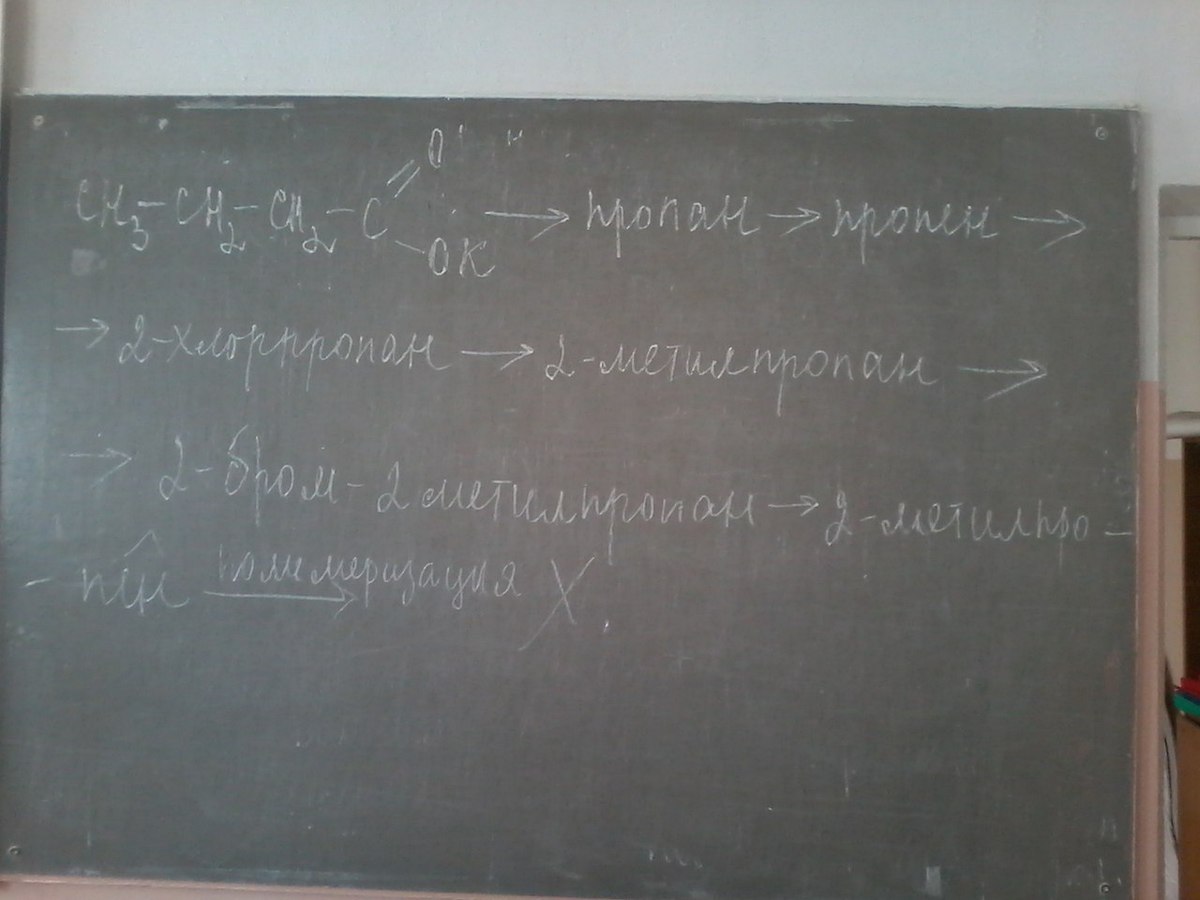 CH₃-CH₂-CH₂-C(=O)-OK → пропан → пропен →
→ 2-хлорпропан → 2-метилпропан →
→ 2-бром-2метилпропан → 2-метилпро-
- пен полимеризация → X